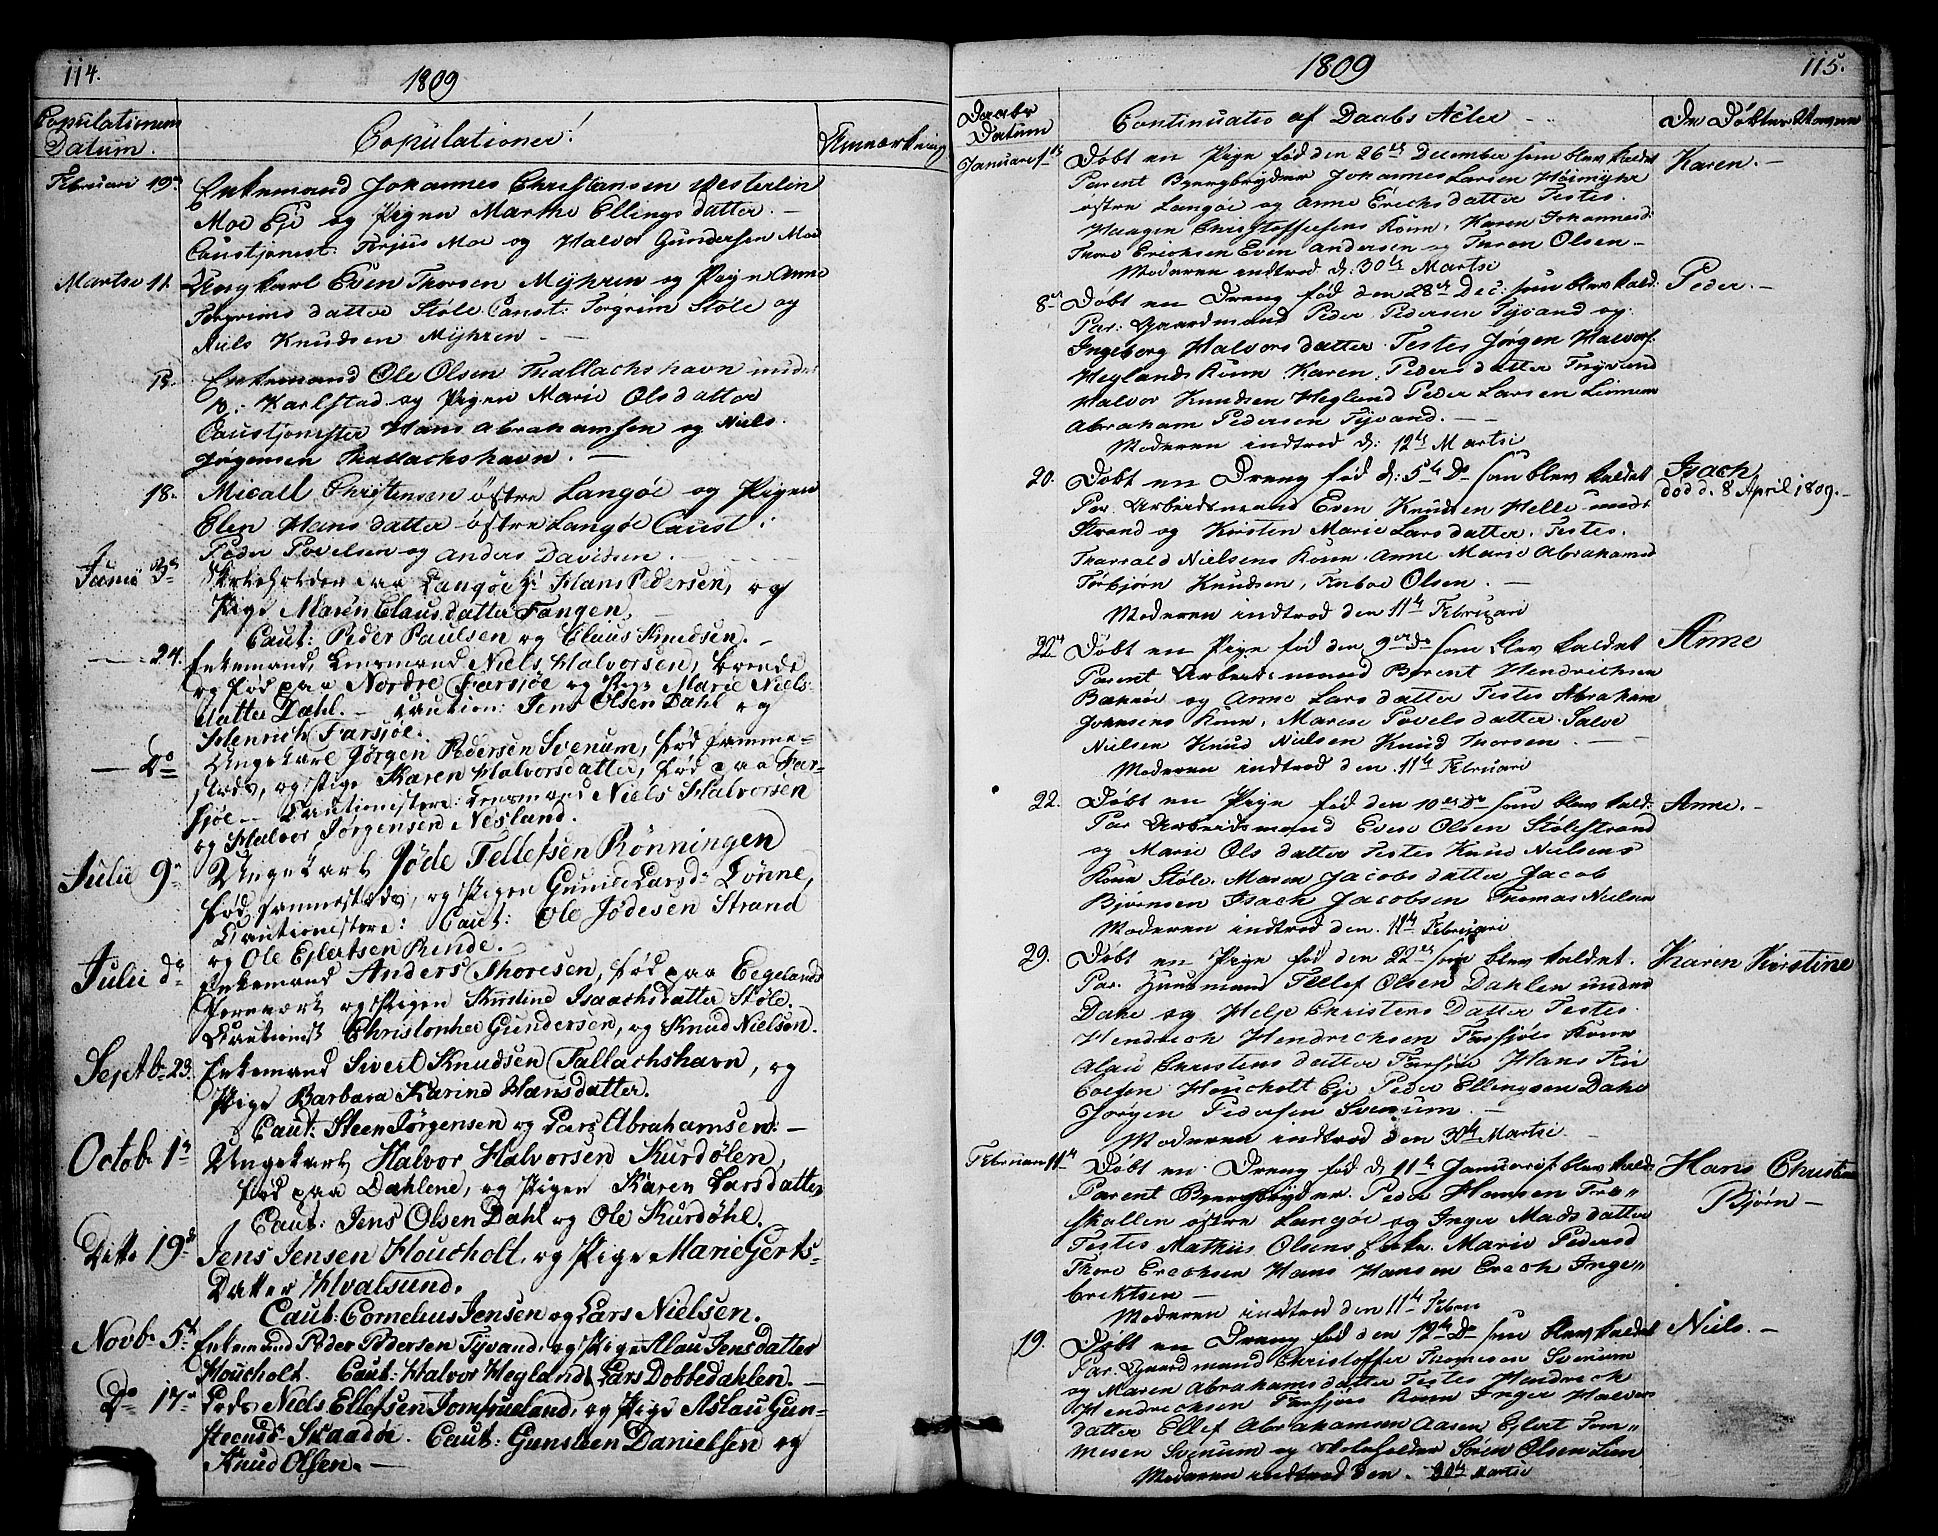 114.
1809
Copulationens Datum.
Copulationer.
Anmærkning
Februari 19de
Enkemand Johannes Christansen Westerlin
Moe Eje og Pigen Marthe Ellings datter. —
Caustjonest: Torjus Moe og Halvor Gundersen Moe
Martsi 11.
Ungkarl Even Thorsen Myhren og Pige Anne
Torgrims datter Støle. Caust: Torgrim Støle og
Niels Knudsen Myhren —
Enkemand Ole Olsen Thallachshavn under
Karlstad og Pigen Marie Ols datter
Caustjonister Hans Abrahamsen og Niels
Jørgensen Thallachshavn. —
18.
Micall Christensen østre Langøe og Pigen
Elen Hans datter østre Langøe Caust:
Peder Povelsen og Anders Davidsen. —
Junii 3de
paa Langøe Hr Hans Pedersen, og
Pige Maren Clausdatter Tangen.
Caut: Peder Paulsen og Claus Knudsen. —
— 24.
Enkemand, Lensmand Niels Halvorsen, boende
og fød paa Nordre Farsjøe og Pige Marie Niels-
datter Dahl. — Caution: Jens Olsen Dahl og
Henrich Farsjøe.
— Do
Ungekarl Jørgen Pedersen Svenum, fød samme-
steds, og Pige Karen Halvorsdatter, fød paa Far-
sjøe — Cautionistere: Lensmand Niels Halvorsen
og Halvor Jørgensen Nesland.
Julii 9de
Ungekarl Jøde Tellefsen Rønningen
fød sammesteds, og Pigen Gunild Larsd: Lønne,
Cautionistere: Caut: Ole Jødesen Strand
og Ole Ejlertsen Rinde. —
Julii do
Enkemand Anders Thoresen, fød paa Eegelands
Jernværk og Pigen Kirstine Isaachsdatter Støle.
Cautionist Christopher Gundersen, og Knud Nielsen.
Septbr 23.
Enkemand Sivert Knudsen Tallachshavn, og
Pige Barbara Karine Hansdatter.
Caut: Steen Jørgensen og Lars Abrahamsen: —
Octob: 1te
Ungekarl Halvor Halvorsen Kurdølen,
fød paa Dahlene, og Pigen Karen Larsdatter
Caut: Jens Olsen Dahl og Ole Kurdøhl.
Ditto 19de
Jens Jensen Houcholt, og Pige Marie Gerts-
Datter Hvalsund.
Caut. Cornelius Jensen og Lars Nielsen.
Novb: 5te
Enkemand Peder Pedersen Tyvand, og Pige Aslau Jensdatter
Houcholt. Caut: Halvor Hegland & Lars Dobbedahlen. —
Do 17de
Lods Niels Ellefsen Jomfrueland, og Pige Aslau Gun-
steensd. Skaadøe. Caut: Gunsteen Danielsen og
Knud Olsen. —
1809
115.
Daabs Datum
Continuatio af Daabs Acter —
De Døbtes Navne
Januari 1te
Døbt en Pige fød den 26de December som blev kaldet
Karen. —
Parent Bjergbryder Johannes Larsen Høimyhr
østre Langøe og Anne Erichs datter Testes.
Haagen Christoffersens Kone, Karen Johannesd:
Thore Erichsen Even Andersen og Thron Olsen —
Moderen indtrod d: 30te Martsi
8de
Døbt en Dreng fød den 28de Dec: som blev kald:
Peder. —
Par: Gaardmand Peder Pedersen Tyvand og
Ingeborg Halvors datter Testes Jørgen Halvors:
Heglands Kone Karen Peders datter Tyvand
Halvor Knudsen Hegland Peder Larsen
Abraham Pedersen Tyvand. —
Moderen indtrod d: 12te Martsi
20.
Døbt en Dreng fød d: 5te Do som blev kaldet
Isach,
død d. 8 April 1809. —
Par Arbeidsmand Even Knudsen Helle
Strand og Kirsten Marie Lars datter. Testes.
Nielsens Kone Anne Marie Abrahamsd
Torbjørn Knudsen, Olsen. —
Moderen indtrod den 11te Februari
22de
Døbt en Pige fød den 9de do som blev kaldet
Anne
Parent Arbeidsmand Berent Hendrichsen
og Anne Lars datter Testes Abraham
Johnsens Kone, Maren Povels datter Salve
Nielsen Knud Nielsen Knud Thorsen. —
Moderen indtrod den 11te Februari
22.
Døbt en Pige fød den 10de Do som blev kald:
Anne. —
Par Arbeidsmand Even Olsen Støle strand
og Marie Ols datter Testes Knud Nielsens
Kone Støle. Maren Jacobs datter Jacob
Bjørnsen Isach Jacobsen Thomas Nielsen
Moderen indtrod den 11te Februari
29.
Døbt en Pige fød den 22de som blev kaldet.
Karen Kirstine
Par. Huusmand Tellef Olsen Dahlen under
Dahl og Helje Christens Datter Testes
Hendrich Hendrichsen Farsjøes Kone
Aslau Christens datter Farsjøe Hans
Houcholt Eje Peder Ellingsen Dahl
Jørgen Pedersen Svenum. —
Moderen indtrod den 30te Martsi
Februari 11te
Døbt en Dreng fød d. 11te Januari blev kald:
Hans Christian
Bjørn —
Parent Bjergbryder Peder Hansen
østre Langøe og Inger Mads datter
Testes Mathiis Olsens Enke. Marie Pedersd
Thore Erichsen Hans Hansen Erich Inge-
brektsen —
Moderen indtrod den 11te Febru
19.
Døbt en Dreng fød den 12te Do som blev kaldet
Niels. —
Par Gaardmand Christoffer Thomesen Svenum
og Maren Abrahams datter Testes Hendrich
Hendrichsen Farsjøes Kone Inger Halvors
datter Ellef Abrahamsen Aasen Ejlert Tom-
mesen Svenum og Søren Olsen
Moderen indtrod den. 30te Martsi